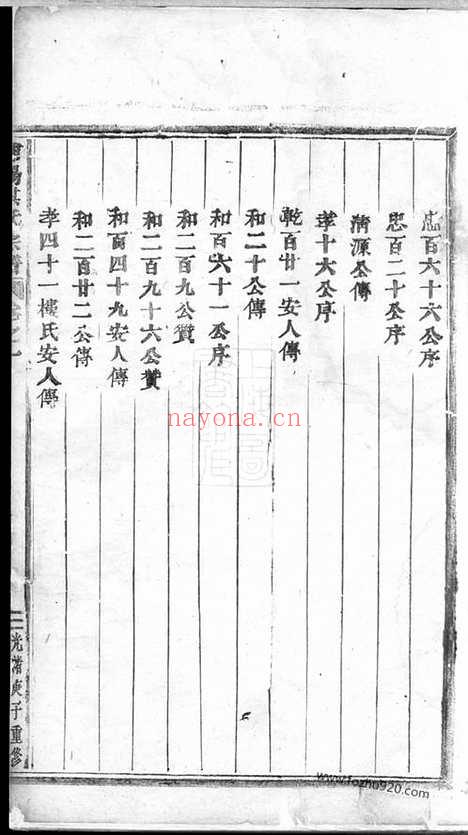 忠百六十六公序
忠百二十公序
清源公傳
孝十六公序
乾百廿一安人傳
和二十公傳
和百六十一公序
和二百九公贊
和二百九十六公贊
和百四十九安人傳
和二百廿二公傳
孝四十一樓氏安人傳
氏宗譜
卷之一
二
光緒庚子重修
nayona.cn
www.fozhu920.com